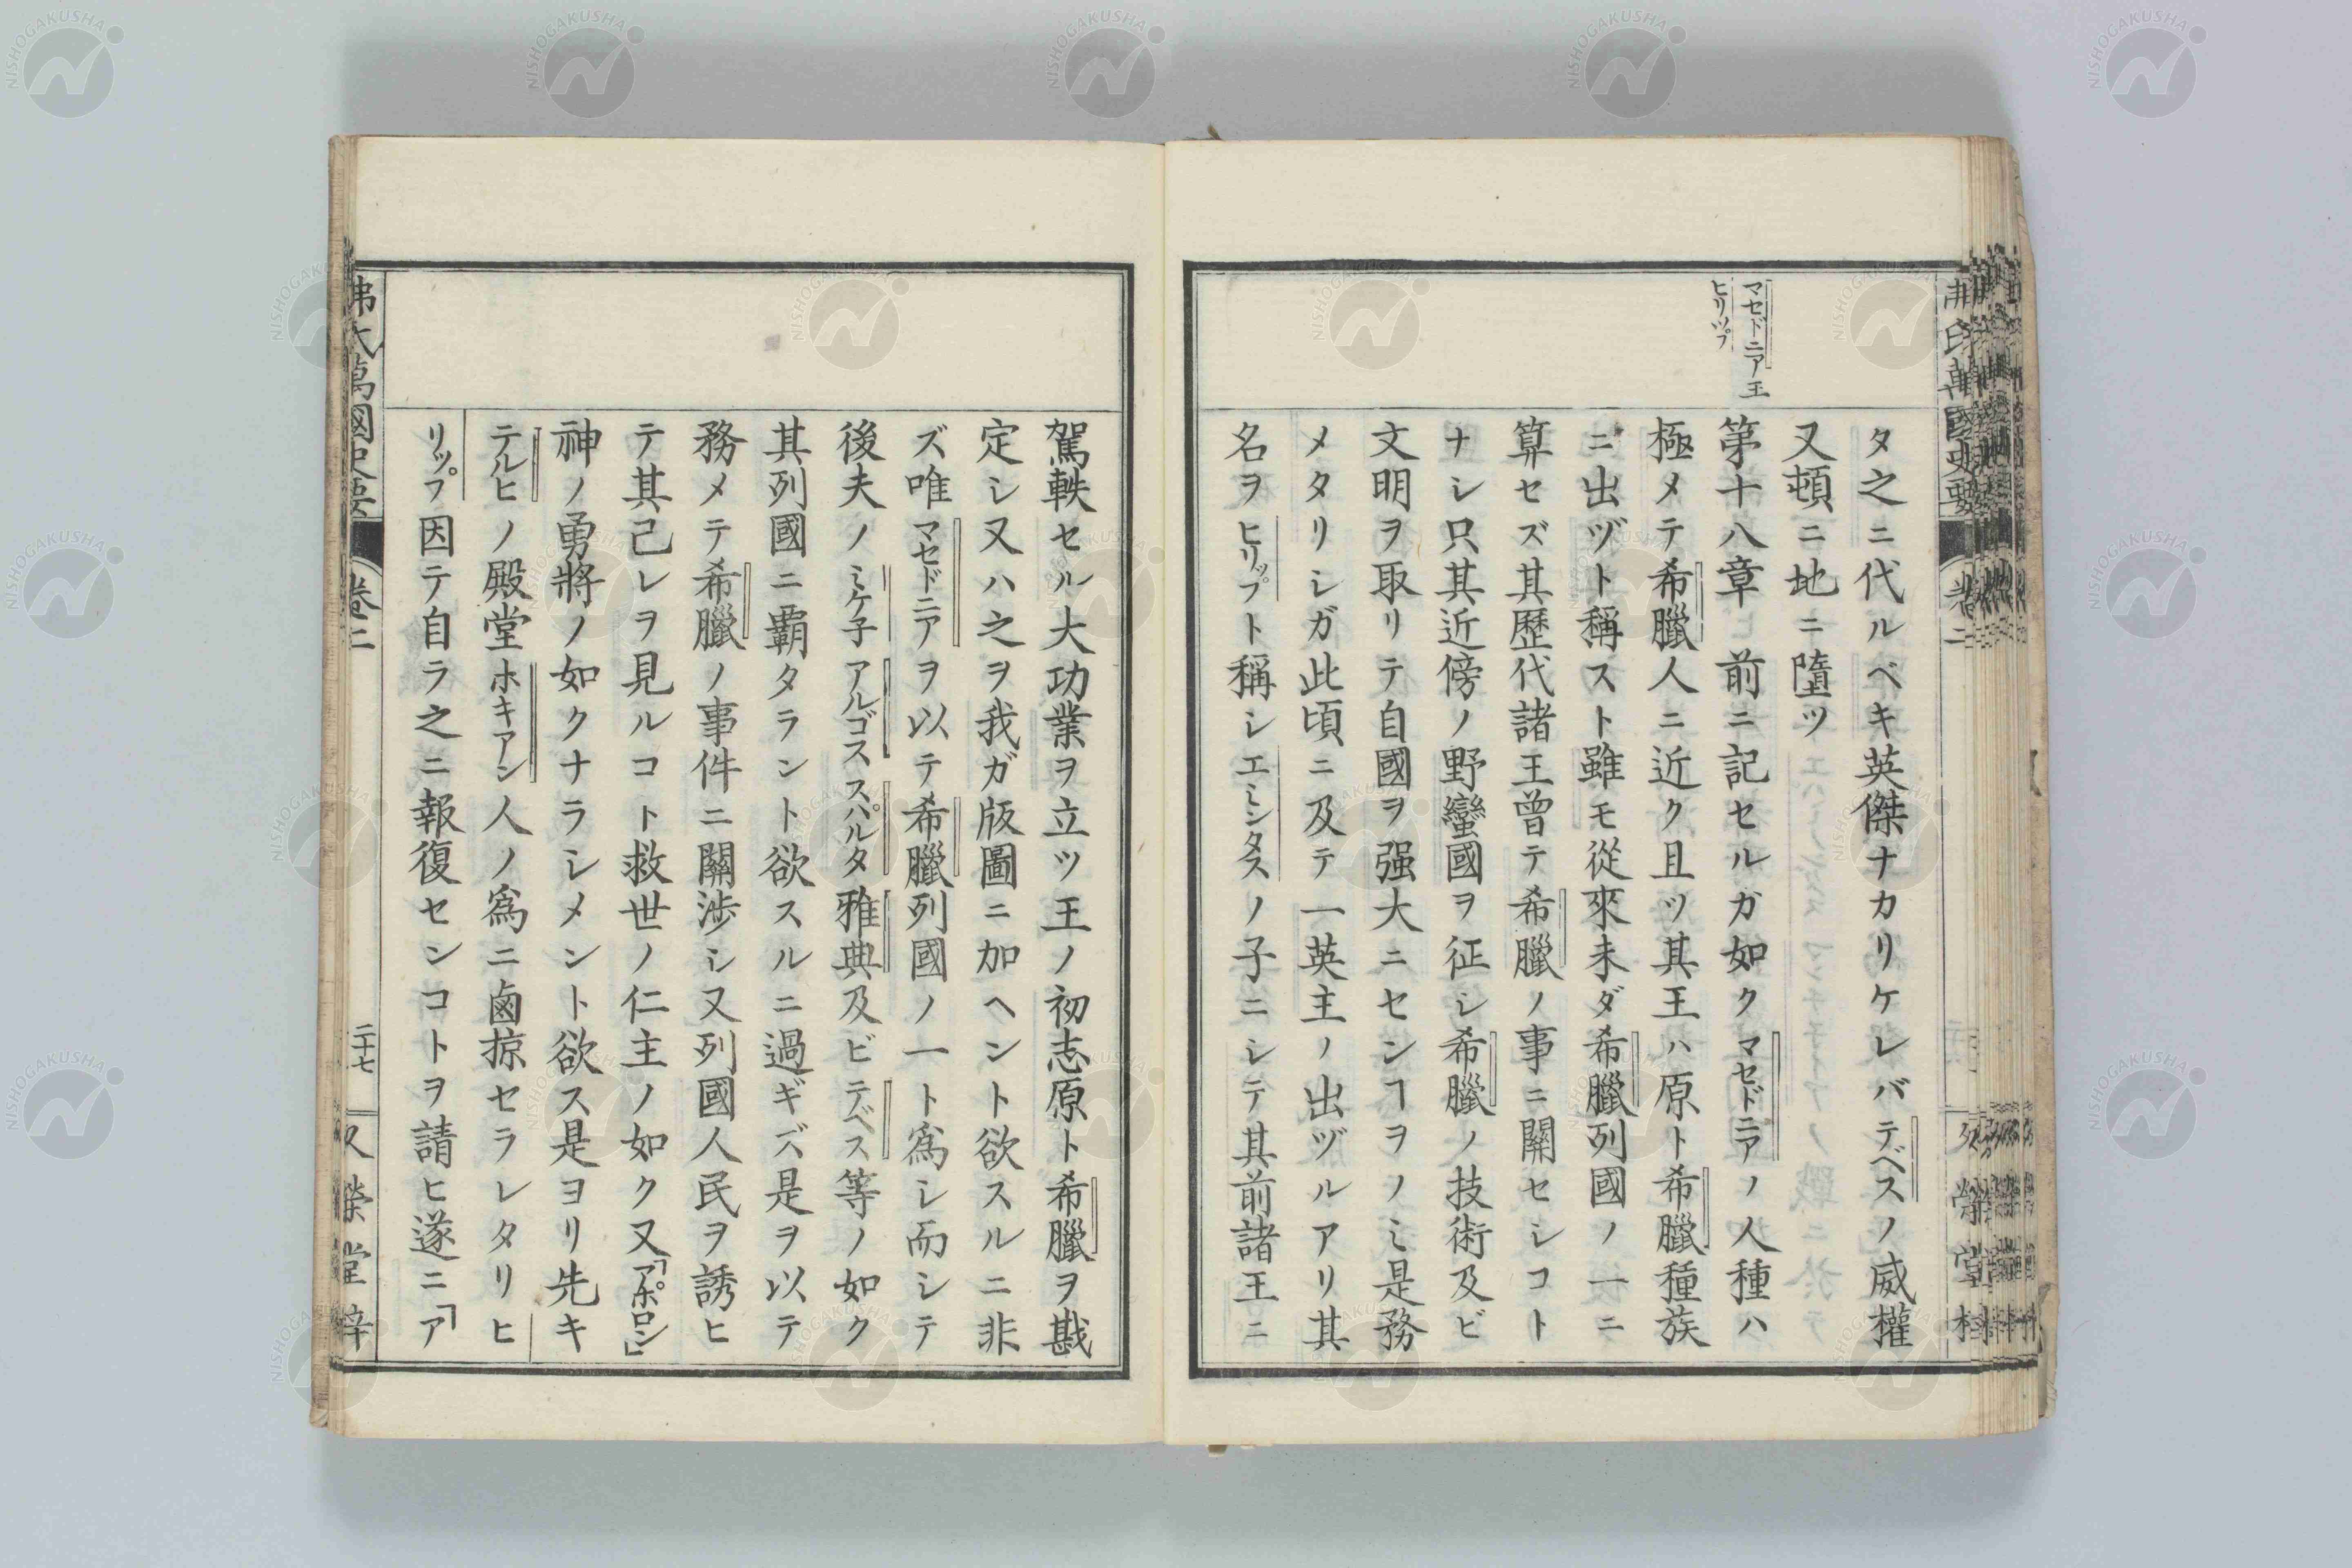 マセドニア王
ヒリップ
タ之ニ代ルベキ英傑ナカリケレバテベスノ威權
又頓ニ地ニ墮ツ
第十八章 前ニ記セルガ如クマセドニアノ人種ハ
極メテ希臘人ニ近ク且ツ其王ハ原ト希臘種族
ニ出ヅト稱スト雖モ從來未ダ希臘列國ノ一ニ
算セズ其歷代諸王曾テ希臘ノ事ニ關セシコト
ナシ只其近傍ノ野蠻國ヲ征シ希臘ノ技術及ビ
文明ヲ取リテ自國ヲ强大ニセンヿヲノミ是務
メタリシガ此頃ニ及テ一英主ノ出ヅルアリ其
名ヲヒリップト稱シエミンタスノ子ニシテ其前諸王ニ
駕軼セル大功業ヲ立ツ王ノ初志原ト希臘ヲ戡
定シ又ハ之ヲ我ガ版圖ニ加ヘント欲スルニ非
ズ唯マセドニアヲ以テ希臘列國ノ一ト爲シ而シテ
後夫ノミケ子アルゴススパルタ雅典及ビテベス等ノ如ク
其列國ニ覇タラント欲スルニ過ギズ是ヲ以テ
務メテ希臘ノ事件ニ關渉シ又列國人民ヲ誘ヒ
テ其己レヲ見ルコト救世ノ仁主ノ如ク又「アポロン」
神ノ勇將ノ如クナラシメント欲ス是ヨリ先キ
テルヒノ殿堂ホキアン人ノ爲ニ鹵掠セラレタリヒ
リップ因テ自ラ之ニ報復センコトヲ請ヒ遂ニ「ア
萬國史要
卷二
二十七
堂梓
NISHOGAKUSHA